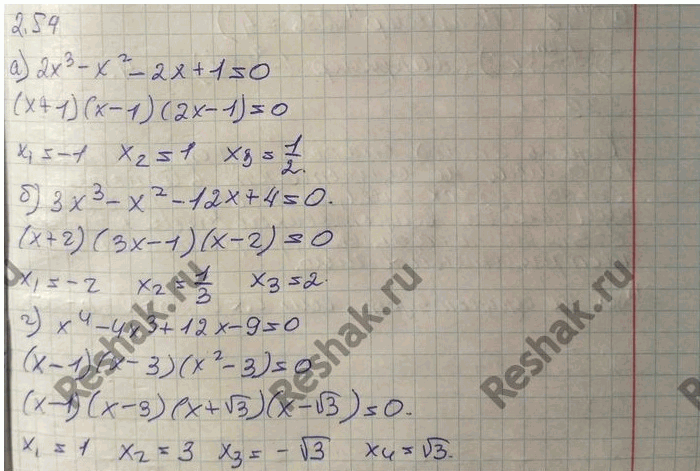 2.54
а) 2x³ - x² - 2x + 1 = 0
(x+1)(x-1)(2x-1) = 0
x₁ = -1 x₂ = 1 x₃ = 1/2.
б) 3x³ - x² - 12x + 4 = 0.
(x+2)(3x-1)(x-2) = 0
x₁ = -2 x₂ = 1/3 x₃ = 2.
г) x⁴ - 4x³ + 12x - 9 = 0
(x-1)(x-3)(x²-3) = 0
(x-1)(x-3)(x+√3)(x-√3) = 0.
x₁ = 1 x₂ = 3 x₃ = -√3 x₄ = √3.
Reshak.ru
Reshak.ru
Reshak.ru